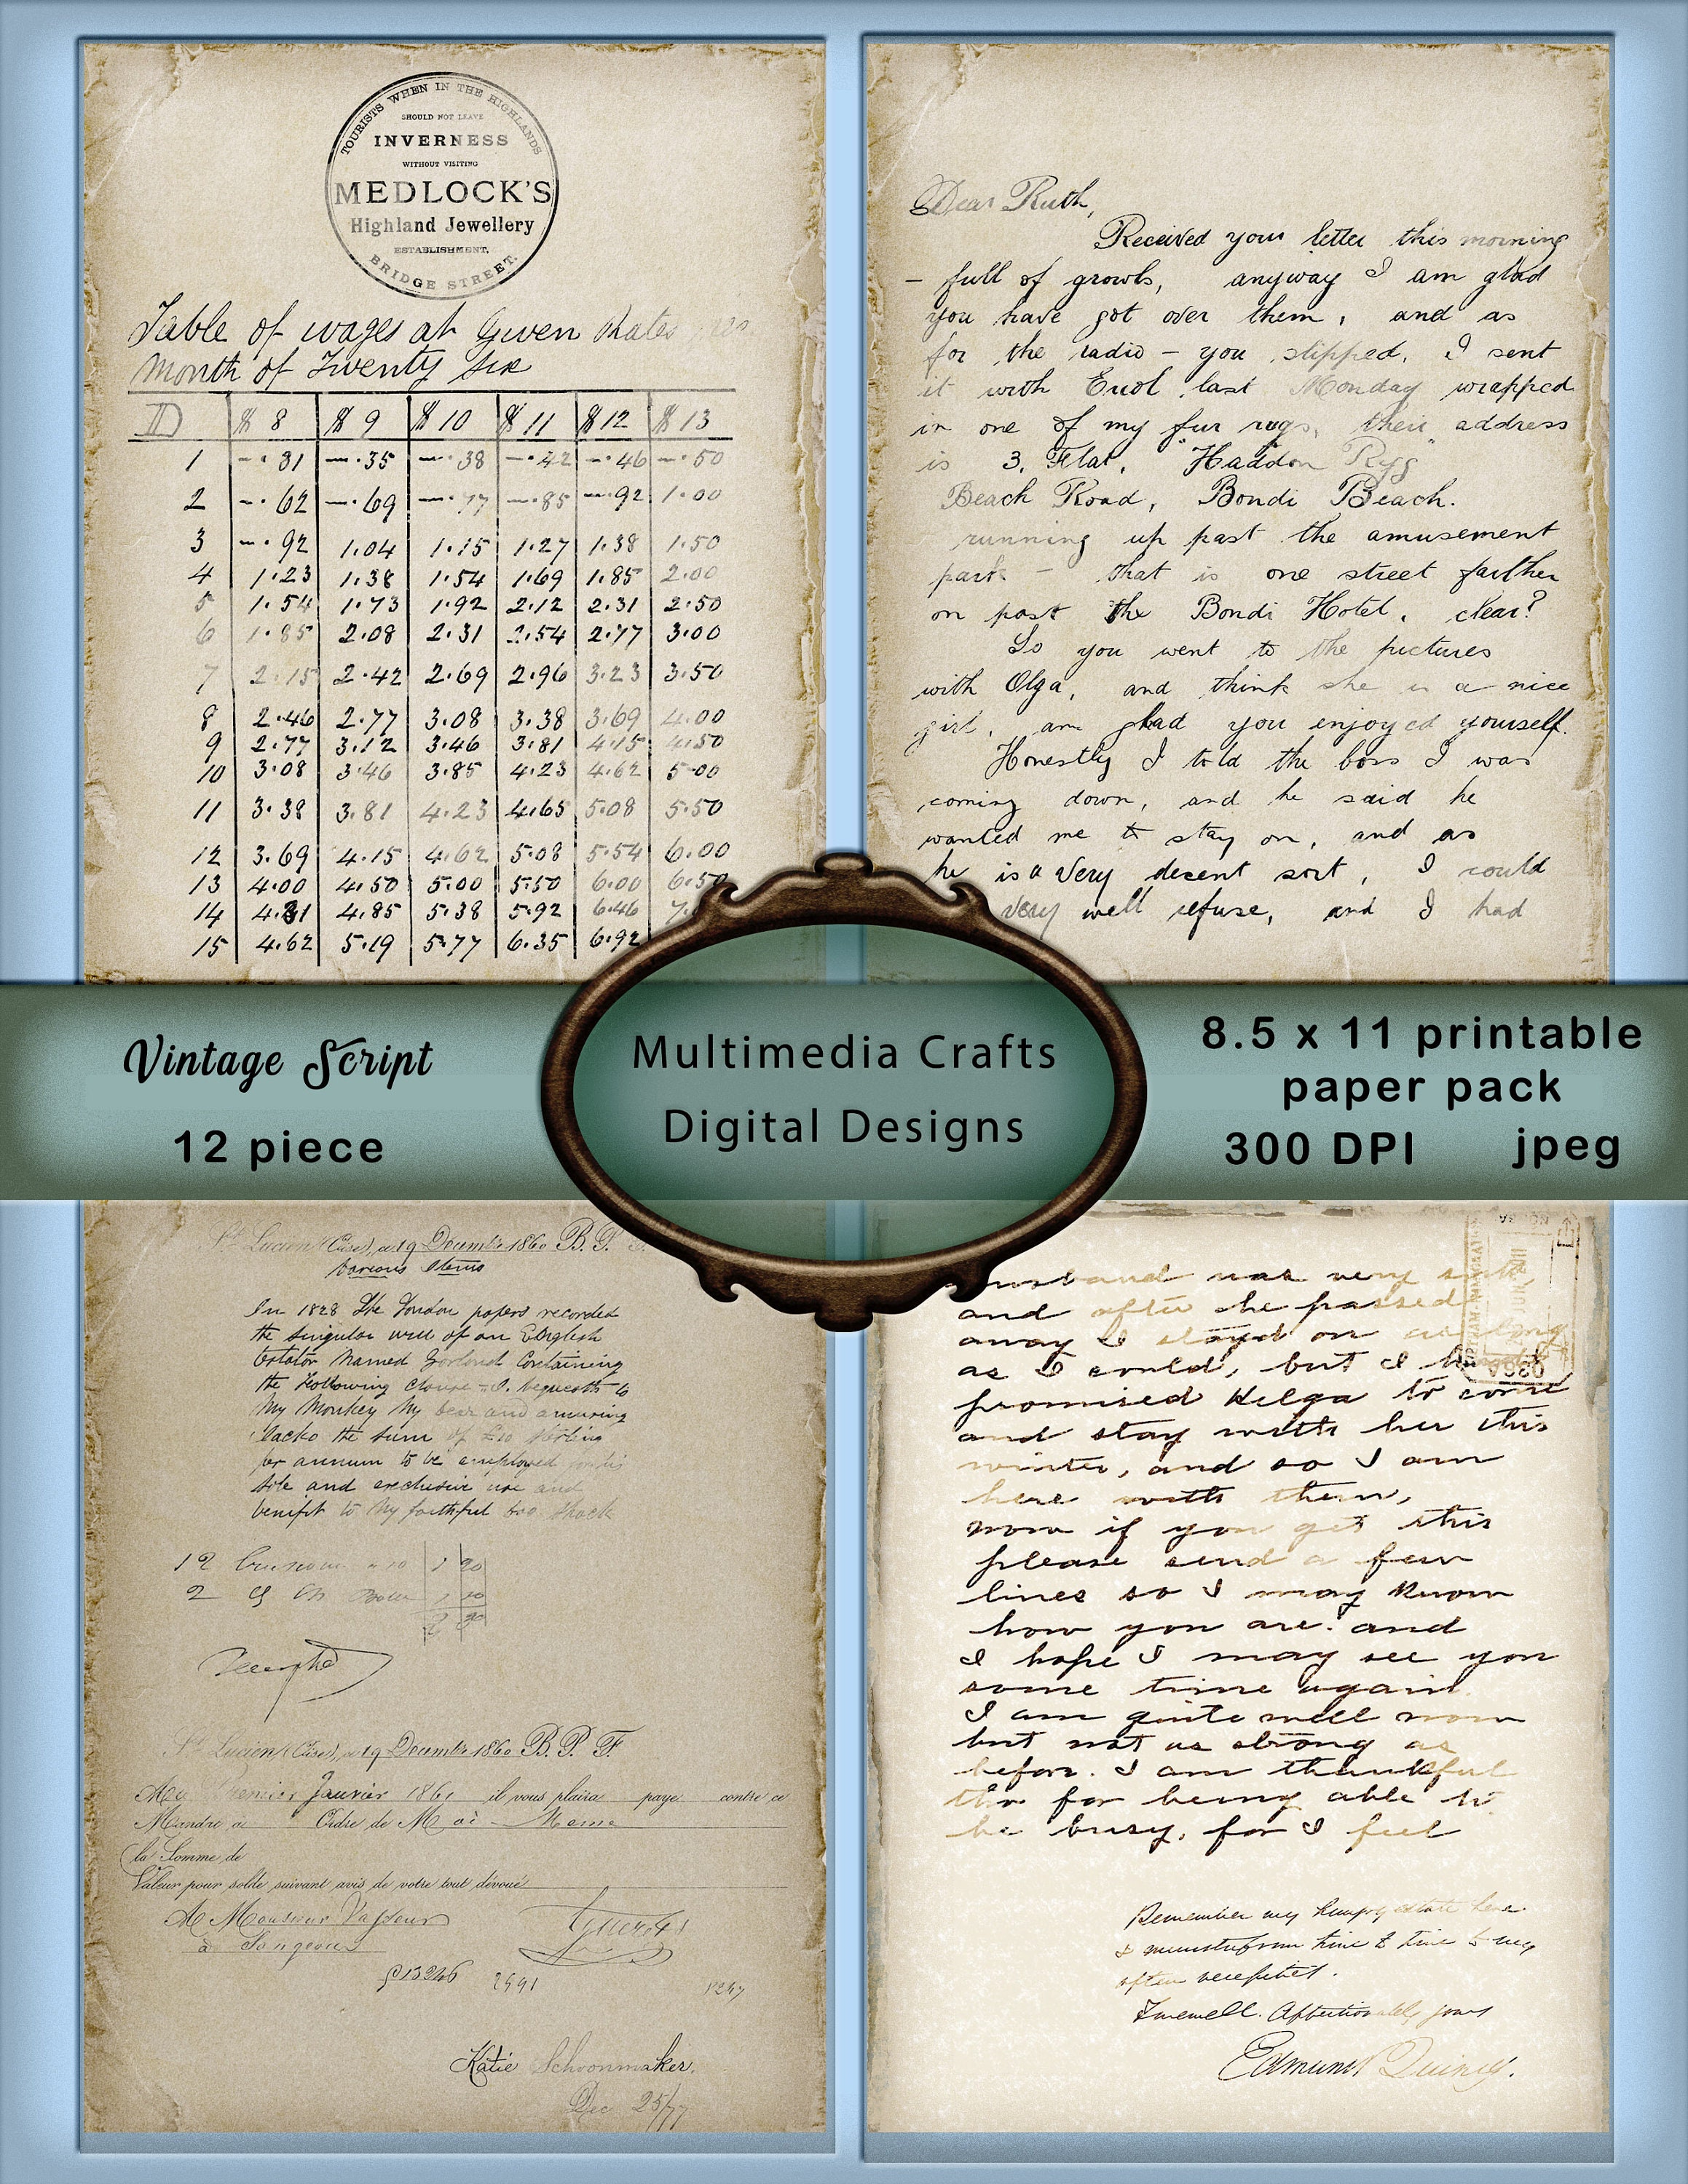 TOURISTS WHEN IN THE HIGHLANDS
SHOULD NOT LEAVE
INVERNESS
WITHOUT VISITING
MEDLOCK'S
Highland Jewellery
ESTABLISHMENT,
BRIDGE STREET.
Table of wages at Given Rates
Month of Twenty six
D $8 $9 $10 $11 $12 $13
1 —.31 —.35 —.38 —.42 —.46 —.50
2 —.62 —.69 —.77 —.85 —.92 1.00
3 —.92 1.04 1.15 1.27 1.38 1.50
4 1.23 1.38 1.54 1.69 1.85 2.00
5 1.54 1.73 1.92 2.12 2.31 2.50
6 1.85 2.08 2.31 2.54 2.77 3.00
7 2.15 2.42 2.69 2.96 3.23 3.50
8 2.46 2.77 3.08 3.38 3.69 4.00
9 2.77 3.12 3.46 3.81 4.15 4.50
10 3.08 3.46 3.85 4.23 4.62 5.00
11 3.38 3.81 4.23 4.65 5.08 5.50
12 3.69 4.15 4.62 5.08 5.54 6.00
13 4.00 4.50 5.00 5.50 6.00 6.50
14 4.31 4.85 5.38 5.92 6.46 7.
15 4.62 5.19 5.77 6.35 6.92
Dear Ruth,
Received your letter this morning
– full of growls, anyway I am glad
you have got over them, and as
for the radio – you slipped, I sent
it with last Monday wrapped
in one of my fur rugs, their address
is 3, Flat, "Haddon Rigg"
Beach Road, Bondi Beach.
running up past the amusement
park – that is one street farther
on past the Bondi Hotel, clear?
So you went to the pictures
with Olga, and think she is a nice
girl, am glad you enjoyed yourself.
Honestly I told the boss I was
coming down, and he said he
wanted me to stay on, and as
he is a very decent sort, I could
very well refuse, and I had
Vintage Script
12 piece
Multimedia Crafts
Digital Designs
8.5 x 11 printable
paper pack
300 DPI jpeg
St Lucien (Oise), le 19 Decembre 1860 B. P.
Various Items
In 1828 the London papers recorded
the singular will of an English
testator Named Garland Containing
the Following clause – I bequeath to
My Monkey My dear and amusing
Jacko the sum of £10 sterling
per annum to be employed for his
sole and exclusive use and
benefit to My faithful
12
2
St Lucien (Oise), le 19 Decembre 1860 B. P. F.
Au Premier Janvier 1861 il vous plaira payer contre ce
Mandat à Ordre de M
la Somme de
Valeur pour solde suivant avis de votre tout dévoué
A Monsieur Vasseur
à Songeons
13246 2491
Katie Schoonmaker.
Dec 25/77
husband was very sick,
and after she passed
away I stayed on as long
as I could, but I had
promised Helga to come
and stay with her this
winter, and so I am
here with them,
now if you get this
please send a few
lines so I may know
how you are. and
I hope I may see you
some time again.
I am quite well now
but not as strong as
before. I am thankful
tho for being able to
be busy, for I feel
Remember my hungry state here.
I must from time to time
often
Farewell. Affectionately yours
Edmund Quincy.